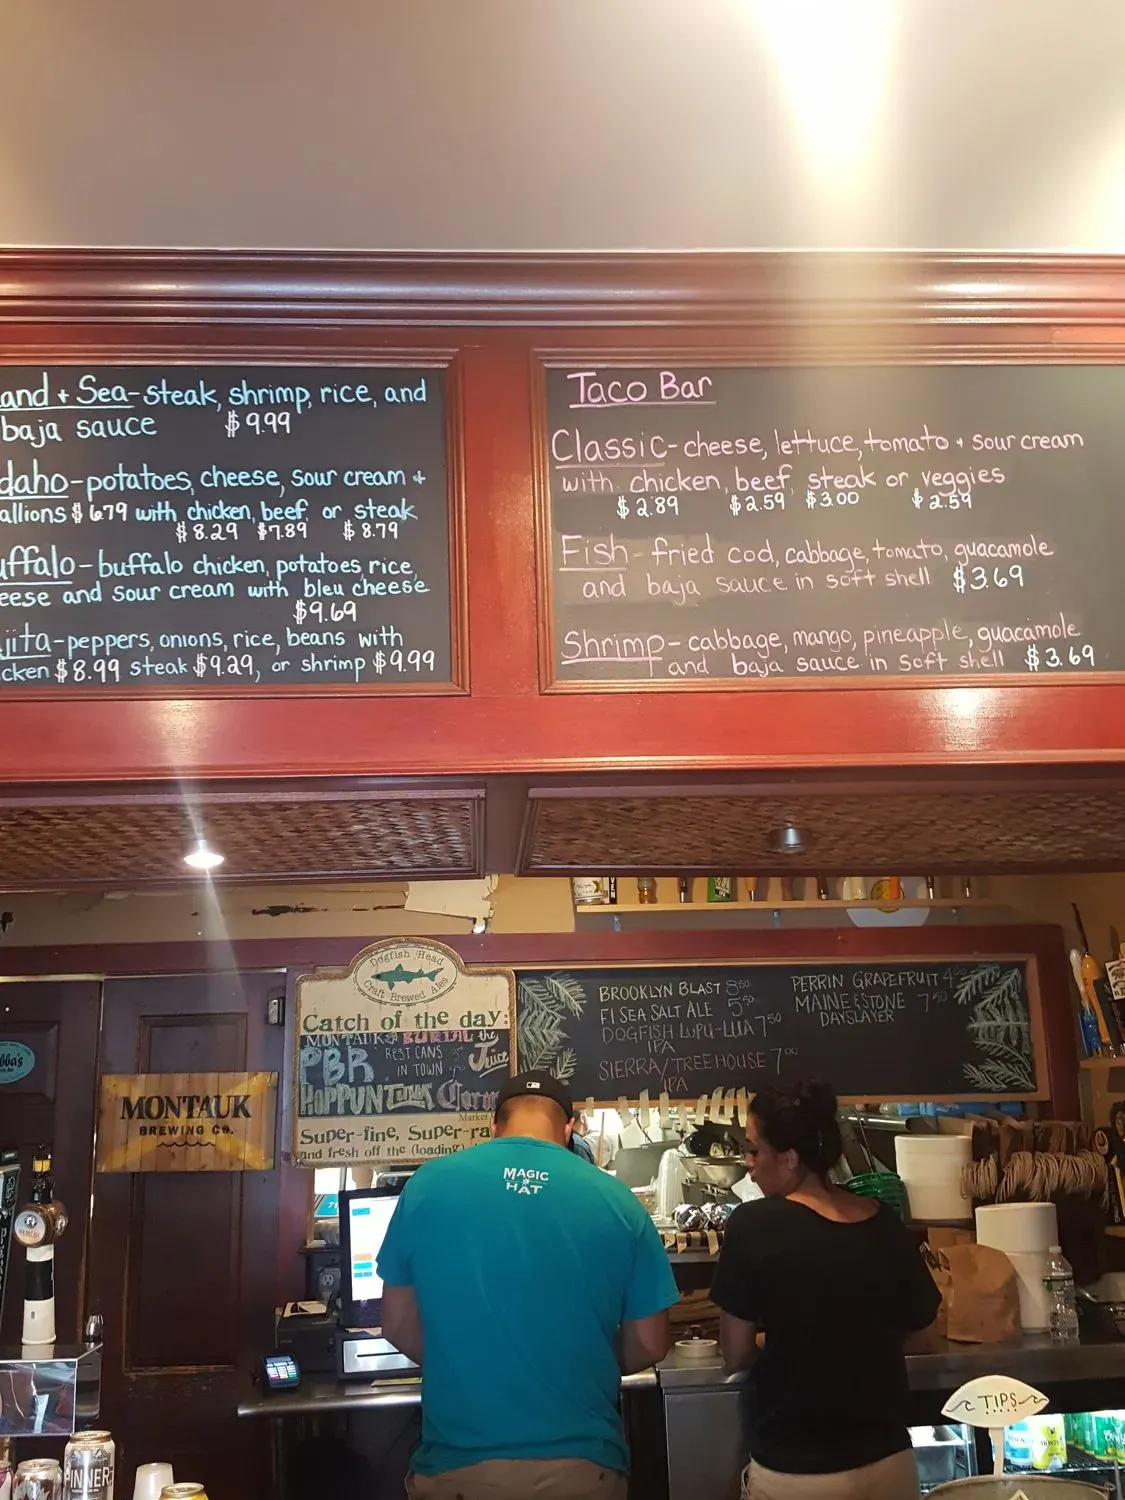 and + Sea-steak, shrimp, rice, and
baja sauce $9.99
daho-potatoes, cheese, sour cream +
allions $6.79 with chicken, beef or steak
$8.29 $7.89 $8.79
uffalo-buffalo chicken, potatoes, rice,
eese and sour cream with bleu cheese
$9.69
jita-peppers, onions, rice, beans with
cken $8.99 steak $9.29, or shrimp $9.99
Taco Bar
Classic-cheese, lettuce, tomato + sour cream
with chicken, beef, steak or veggies
$2.89 $2.59 $3.00 $2.59
Fish-fried cod, cabbage, tomato, guacamole
and baja sauce in soft shell $3.69
Shrimp-cabbage, mango, pineapple, guacamole
and baja sauce in soft shell $3.69
Dogfish Head
Craft Brewed Ales
Catch of the day:
MONTAUK BURIAL the
PBR BEST CANS Juice
IN TOWN
HOPPUN
Market
Super-fine, Super-ra
and fresh off the (loading)
BROOKLYN BLAST 8
FI SEA SALT ALE 5 50
DOGFISH LUPU-LUA 7 50
IPA
SIERRA/TREEHOUSE 7 00
IPA
PERRIN GRAPEFRUIT 4
MAINE & STONE 7 50
DAYSLAYER
bba's
MONTAUK
BREWING CO.
MAGIC
HAT
TIPS
INNER